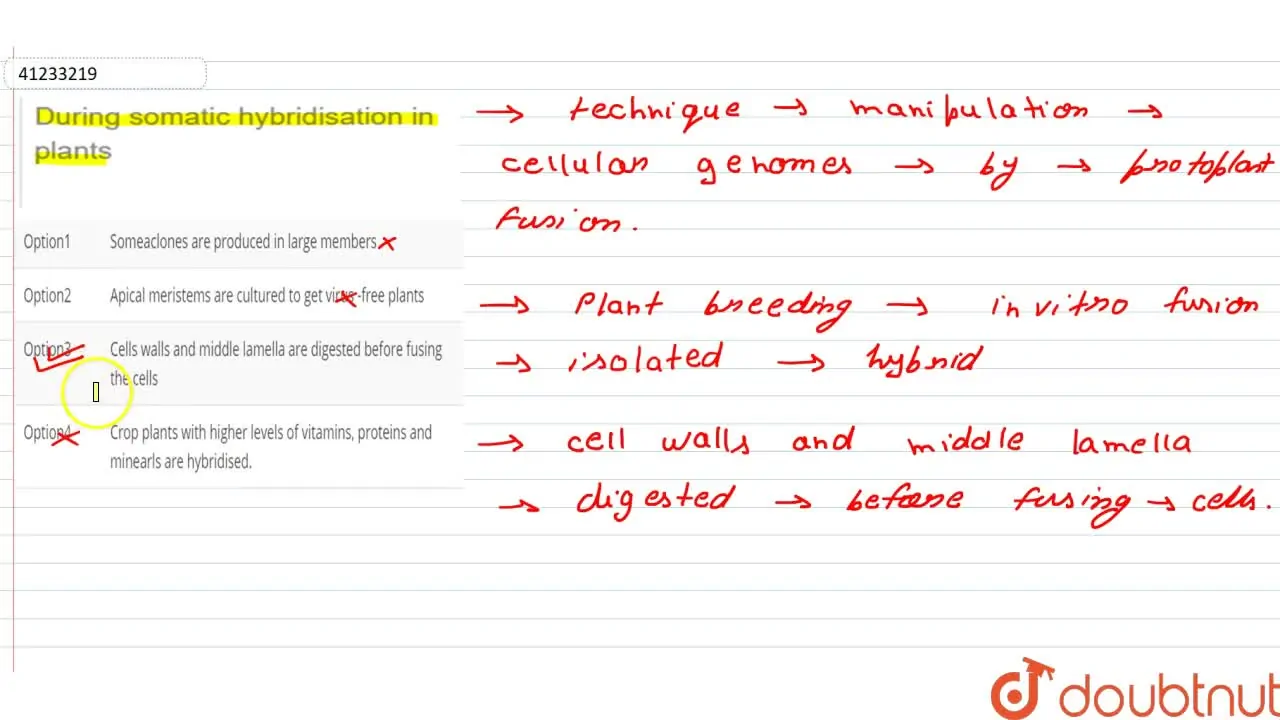 41233219
During somatic hybridisation in
plants
Option1 Someaclones are produced in large members
Option2 Apical meristems are cultured to get virus-free plants
Option3 Cells walls and middle lamella are digested before fusing
the cells
Option4 Crop plants with higher levels of vitamins, proteins and
minearls are hybridised.
→ technique → manipulation →
cellular genomes → by → protoplast
fusion.
→ Plant breeding → in vitro fusion
→ isolated → hybrid
→ cell walls and middle lamella
→ digested → before fusing → cells.
doubtnut